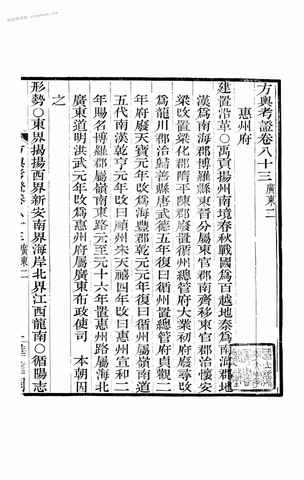 方輿考證卷八十三 廣東二
惠州府
建置沿革○禹貢揚州南境春秋戰國爲百越地秦爲南海郡地
漢爲南海郡博羅縣東晉分屬東官郡南齊移東官郡治懷安
梁改置梁化郡隋平陳郡廢置循州總管府大業初府廢尋改
爲龍川郡治歸善縣唐武德五年復曰循州置總管府貞觀二
年府廢天寶元年改爲海豐郡乾元元年復曰循州屬嶺南道
五代南漢乾亨元年改曰禎州宋天禧四年改曰惠州宣和二
年賜名博羅郡屬嶺南東路元至元十六年置惠州路屬海北
廣東道明洪武元年改爲惠州府屬廣東布政使司 本朝因
之
形勢○東界揭揚西界新安南界海岸北界江西龍南○循陽志
方輿考證卷八十三 廣東二